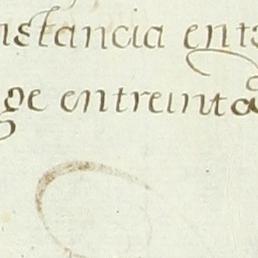 nstancia ent
ge entreinta